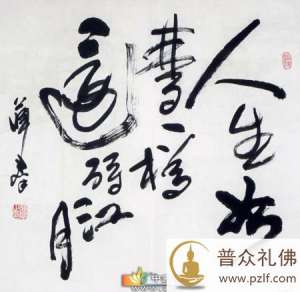 人生如
夢一樽
還酹江月
普众礼佛
www.pzlf.com